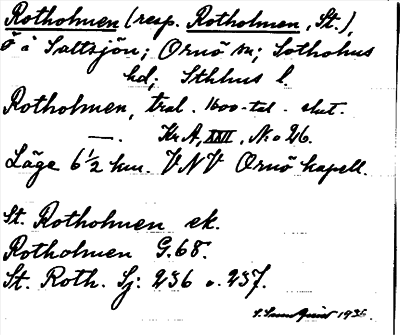 Rotholmen (resp. Rotholmen, St.),
ö i Saltsjön; Ornö sn; Sotholms
hd; Sthlms l.
Rotholmen, tral. 1600-tal. slut.
—. Kr. A, XXII, N:o 26.
Läge 6 1/2 km. VNV Ornö kapell.
St. Rotholmen ek.
Rotholmen G.68.
St. Roth. Sj: 236 o. 237.
1936.